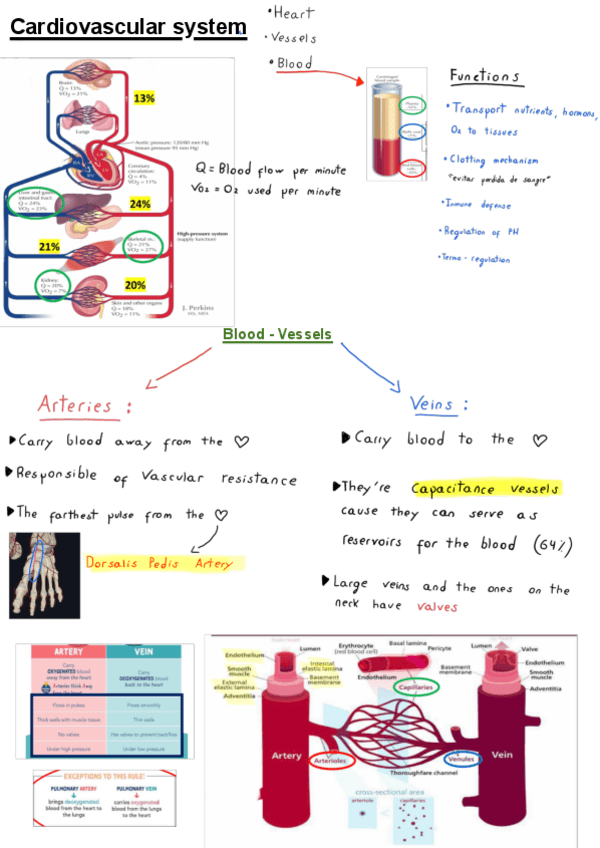 Cardiovascular system
• Heart
• Vessels
• Blood
Brain:
Q = 13%
VO₂ = 21%
13%
Lungs
Aortic pressure: 120/80 mm Hg
(mean pressure 95 mm Hg)
Coronary
circulation:
Q = 4%
VO₂ = 11%
Liver and
intestinal tract:
Q = 24%
VO₂ = 23%
24%
21%
Skeletal m.:
Q = 21%
VO₂ = 27%
High-pressure system
(supply function)
Kidney:
Q = 20%
VO₂ = 7%
20%
Skin and other organs:
Q = 18%
VO₂ = 11%
J. Perkins
MS, MFA
Q = Blood flow per minute
VO₂ = O₂ used per minute
Functions
• Transport nutrients, hormons,
O₂ to tissues
• Clotting mechanism
"evitar perdida de sangre"
• Inmune defense
• Regulation of PH
• Termo - regulation
Blood - Vessels
Arteries :
Carry blood away from the ♡
Responsible of Vascular resistance
The farthest pulse from the ♡
Dorsalis Pedis Artery
Veins :
Carry blood to the ♡
They're Capacitance vessels
cause they can serve as
reservoirs for the blood (64%)
Large veins and the ones on the
neck have valves
ARTERY VEIN
Carry
OXYGENATED blood
away from the heart
Carry
DEOXYGENATED blood
back to the heart
Flows in pulses Flows smoothly
Thick walls with muscle tissue Thin walls
No valves Has valves to prevent backflow
Under high pressure Under low pressure
EXCEPTIONS TO THIS RULE:
PULMONARY ARTERY
brings deoxygenated
blood from the heart to
the lungs
PULMONARY VEIN
carries oxygenated
blood from the lungs
to the heart
Endothelium
Lumen
Smooth
muscle
Internal
elastic lamina
External
elastic lamina
Basement
membrane
Adventitia
Erythrocyte
(red blood cell)
Basal lamina
Pericyte
Endothelium
Capillaries
Lumen
Valve
Endothelium
Basement
membrane
Smooth
muscle
Adventitia
Artery
Arterioles
Venules
Vein
Thoroughfare channel
cross-sectional area
arteriole < capillaries